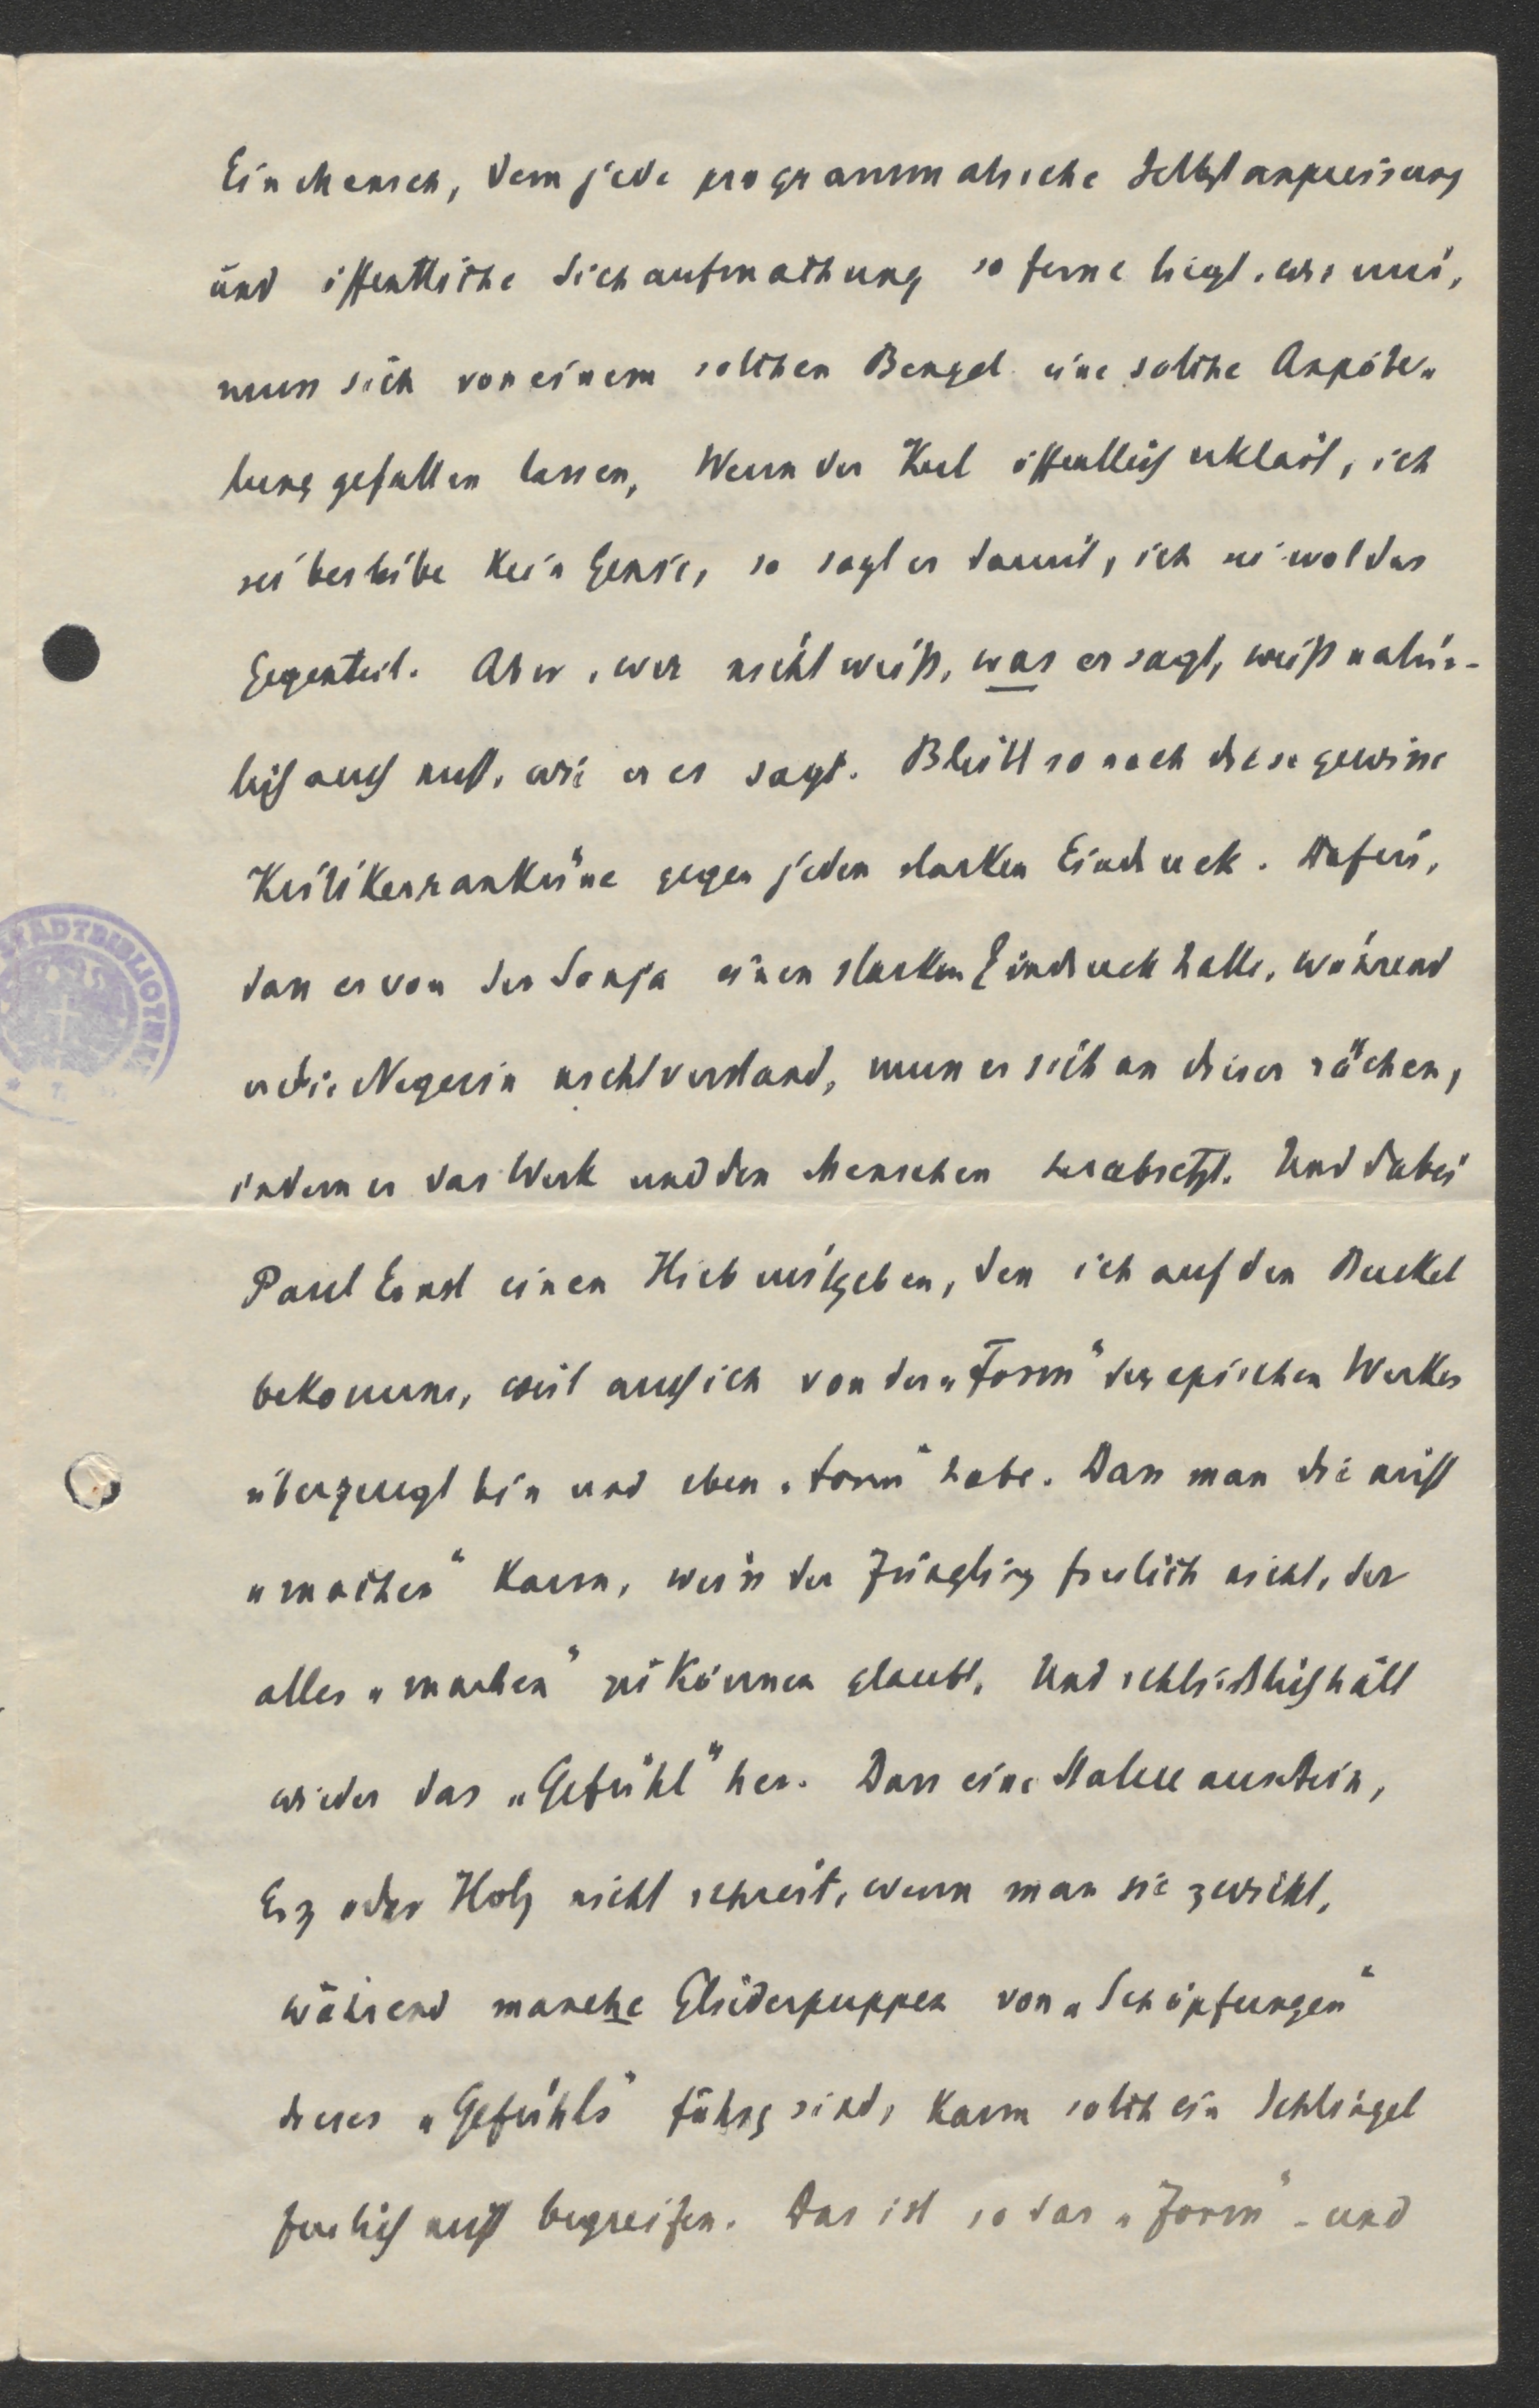 Ein Mensch, dem jede programmatische Selbstanpreisung
und öffentliche Sichaufmachung so ferne liegt, wie mir,
muss sich von einem solchen Bengel eine solche Anpöbe-
lung gefallen lassen. Wenn der Kerl öffentlich erklärt, ich
sei beileibe kein Genie, so sagt er damit, ich sei wol das
Gegenteil. Aber, wer nicht weiß, was er sagt, weiß natür-
lich auch nicht, wie er es sagt. Bleibt so noch diese gewisse
Kritikerrankü̈ne gegen jeden starken Eindruck. Dafür,
dass er von der Sonja einen starken Eindruck hatte, während
er die Negerin nicht verstand, muss er sich an dieser rächen,
indem er das Werk und den Menschen herabsetzt. Und dabei
Paul Ernst einen Hieb mitgeben, den ich auf den Buckel
bekomme, weil auch ich von der „Form" des epischen Werkes
überzeugt bin und eben „Form" habe. Dass man die nicht
„machen" kann, weiss der Jüngling freilich nicht, der
alles „machen" zu können glaubt. Und schließlich hält
wieder das „Gefühl" her. Dass eine Statue aus Stein,
Erz oder Holz nicht schreit, wenn man sie zwickt,
während manche Gliederpuppen von „Schöpfungen"
dieses „Gefühls" fähig sind, kann solch ein Schlingel
freilich nicht begreifen. Das ist so das „Form" - und
STADTBIBLIOTHEK